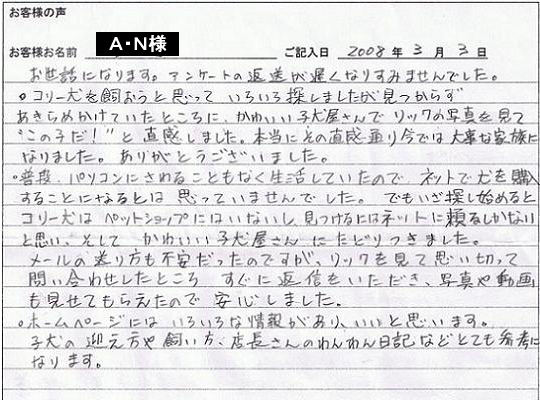 お客様の声
お客様お名前 A・N様 ご記入日 2008年 3月 3日
お世話になります。アンケートの返送が遅くなりすみませんでした。
。コリー犬を飼おうと思って いろいろ探しましたが見つからず
あきらめかけていたところに、かわいい子犬屋さんで リックの写真を見て
"この子だ！"と直感しました。本当にその直感通り今では大事な家族に
なりました。ありがとうございました。
。普段、パソコンにさわることもなく生活していたので、ネットで犬を購入
することになるとは 思っていませんでした。でもいざ探し始めると
コリー犬は ペットショップにはいないし、見つけるにはネットに頼るしかない
と思い、そして かわいい子犬屋さん にたどりつきました。
メールの送り方も不安だったのですが、リックを見て思い切って
問い合わせしたところ すぐに返信をいただき、写真や動画
も見せてもらえたので 安心しました。
。ホームページには いろいろな情報があり、いいと思います。
子犬の 迎え方や飼い方、店長さんのわんわん日記などとても参考に
なります。